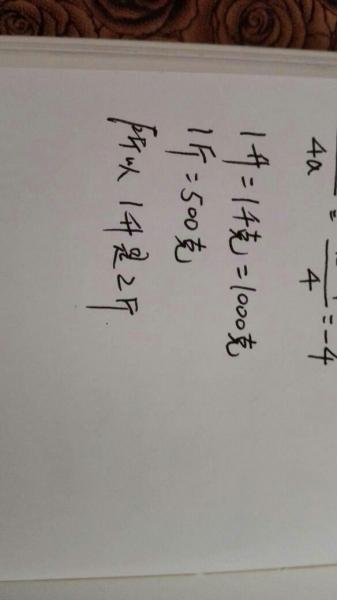 4a = 4 = -4
1升=1千克=1000克
1斤=500克
所以 1升是2斤